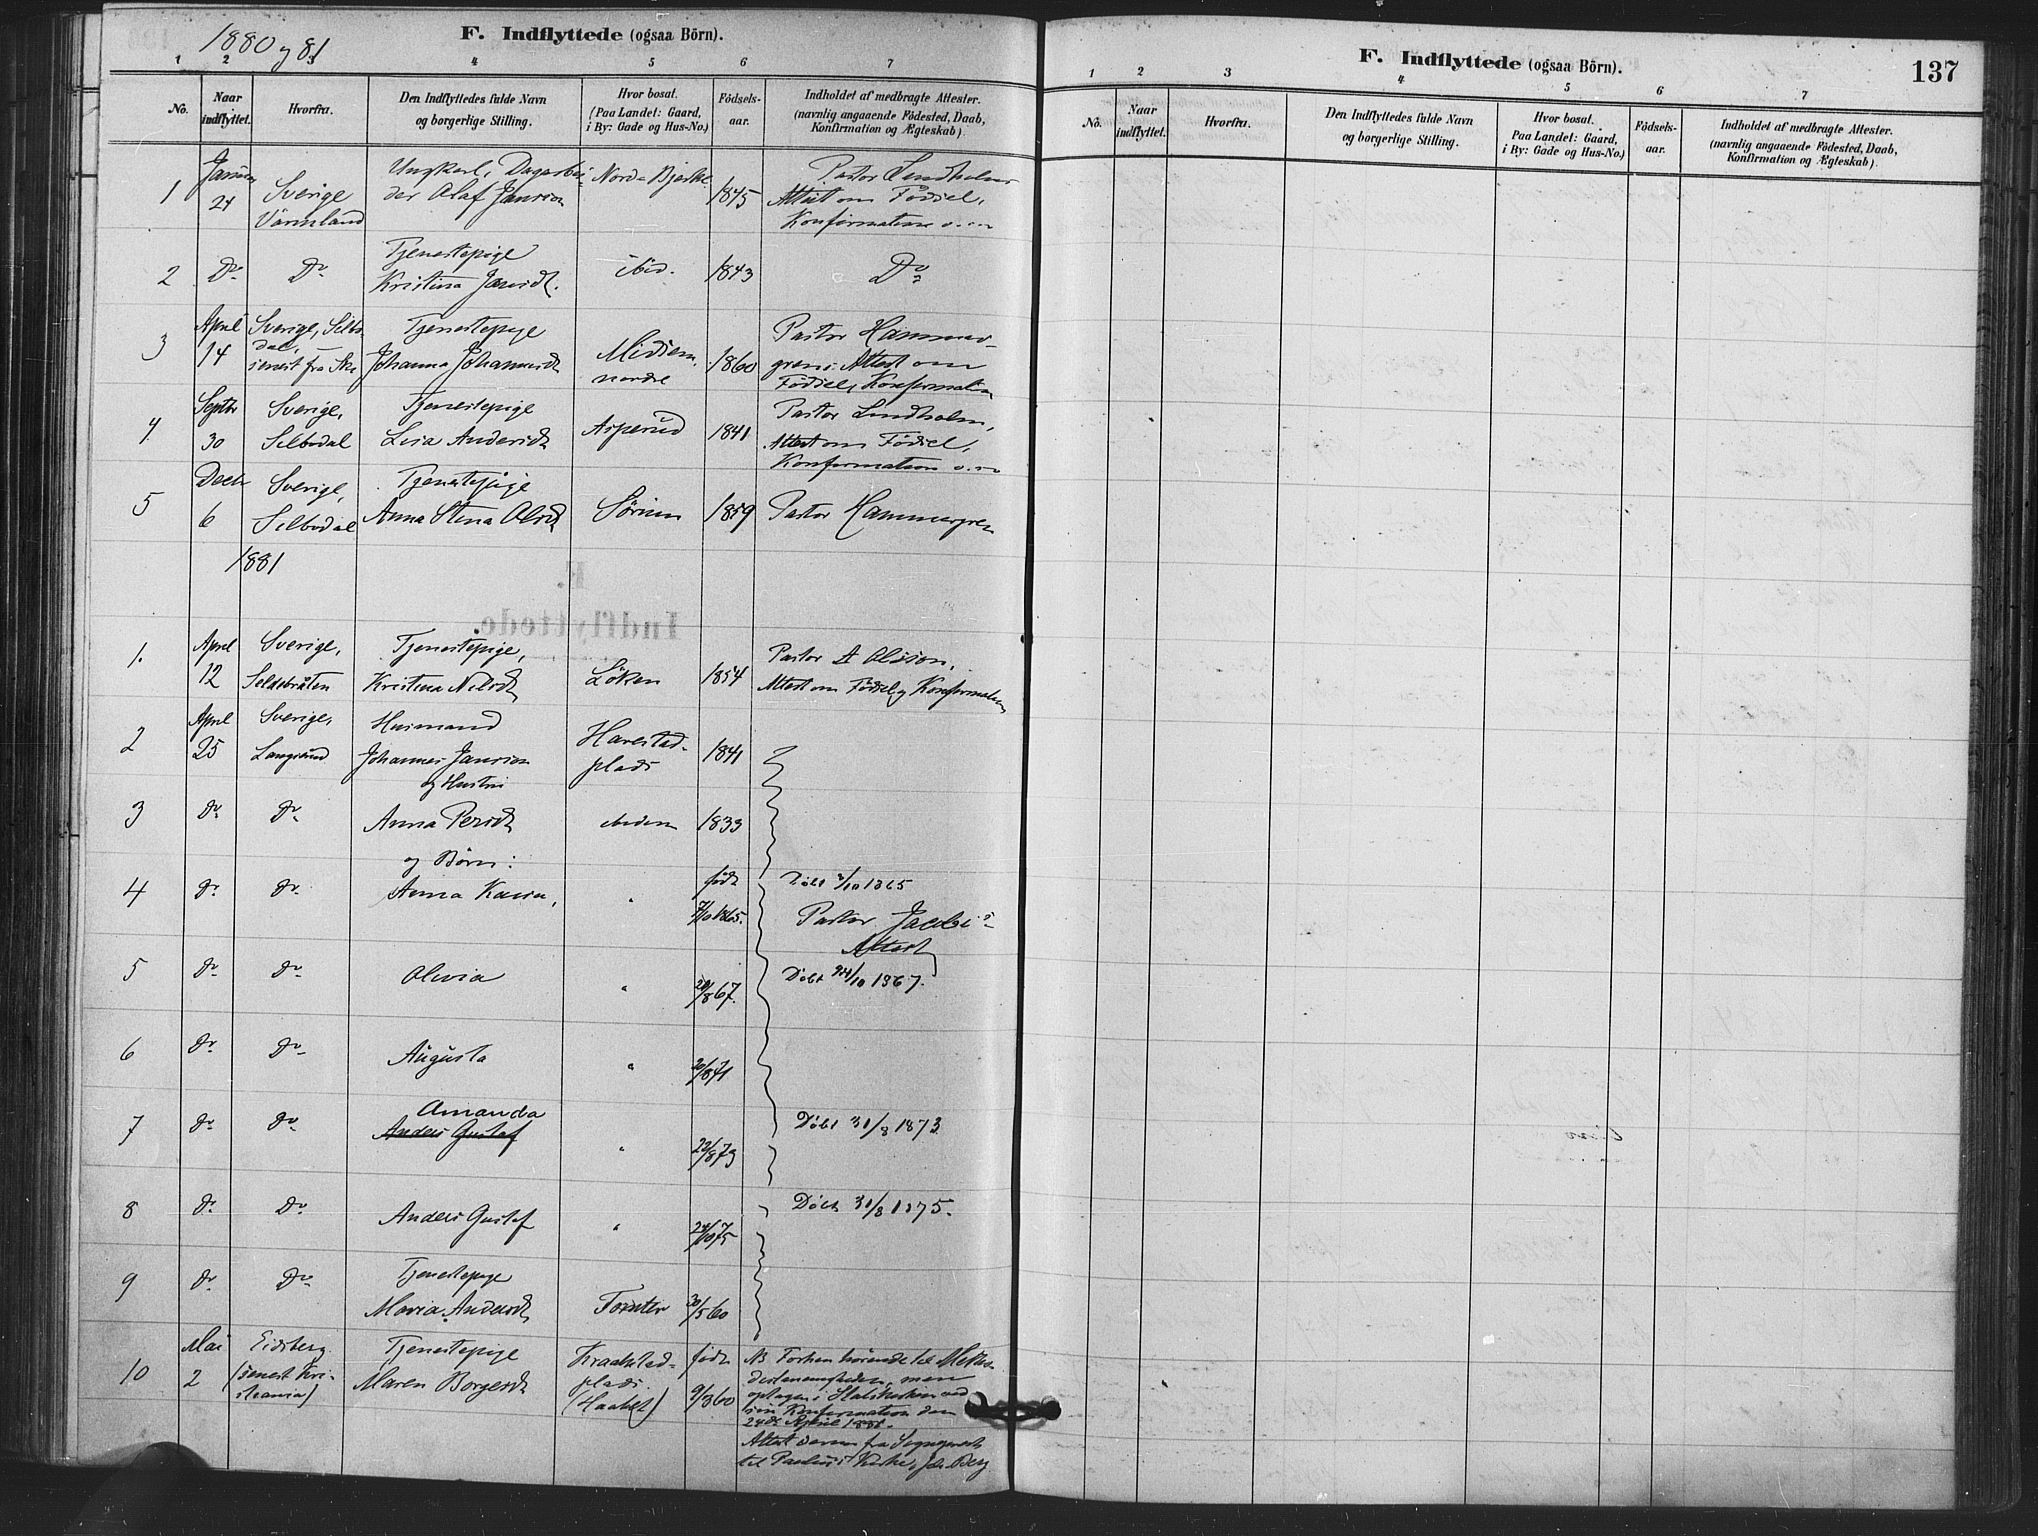 1880 og 81
F. Indflyttede (ogsaa Börn).
1 2 3 4 5 6 7
No. Naar indflyttet. Hvorfra. Den Indflyttedes fulde Navn og borgerlige Stilling. Hvor bosat. (Paa Landet: Gaard, i By: Gade og Hus-No.) Födsels-aar. Indholdet af medbragte Attester. (navnlig angaaende Födested, Daab, Konfirmation og Ægteskab).
1 Januar 24 Sverige Värmland Ungkarl, Dagarbeider Olaf Jansson Nordre Bjerke 1845 Pastor Lindholms Attest om Födsel, Konfirmation
2 Do Do Tjenestepige Kristina Jansdt. ibid. 1843 Do
3 April 14 Sverige, Silbodal, senest fra Ski Tjenestepige Johanna Johannesdt Midsem nordre 1860 Pastor Hammergrens Attest om Födsel, Konfirmation
4 Septbr 30 Sverige, Silbodal Tjenestepige Lisa Andersdt Asperud 1841 Pastor Lindholm, Attest om Födsel, Konfirmation
5 Decbr 6 Sverige, Silbodal Tjenestepige Anna Stina Olsdt Sörum 1859 Pastor Hammergren
1881
F.
Indflyttede.
1. April 12 Sverige, Tjenestepige, Kristina Nilsdt Löken 1854 Pastor Olsson, Attest om Födsel og Konfirmation
2 April 25 Sverige, Langserud Husmand Johannes Jansson og Hustru Harestad-plads 1841
3 Do Do Anna Persdt ibidem 1833
og Börn:
4 Do Do Anna Kaisa, " född 7/10 1865. Döbt 8/10 1865
Pastor Jacobi's Attest
5 Do Do Olivia " 20/8 67. Döbt 24/10 1867.
6 Do Do Augusta " 20/8 71
7 Do Do Amanda Anders Gustaf " 23/8 73 Döbt 31/8 1873
8 Do Do Anders Gustaf " 75 Döbt 31/8 1875.
9 Do Do Tjenestepige Maria Andersdt Tomter 30/5 60
10 Mai 2 Eidsberg (senest Kristiania) Tjenestepige Maren Borgersdt Kraakstad-plads (Haabet) född 9/3 60 NB Forhen hörende til Methodistmenigheden, men optagen i Statskirken ved sin Konfirmation den 24de April 1881.
Attest derom fra Sognepresten til Paulus Kirke, Berg
F. Indflyttede (ogsaa Börn).
137
1 2 3 4 5 6 7
No. Naar indflyttet. Hvorfra. Den Indflyttedes fulde Navn og borgerlige Stilling. Hvor bosat. Paa Landet: Gaard, i By: Gade og Hus-No.) Födsels-aar. Indholdet af medbragte Attester. (navnlig angaaende Födested, Daab, Konfirmation og Ægteskab).